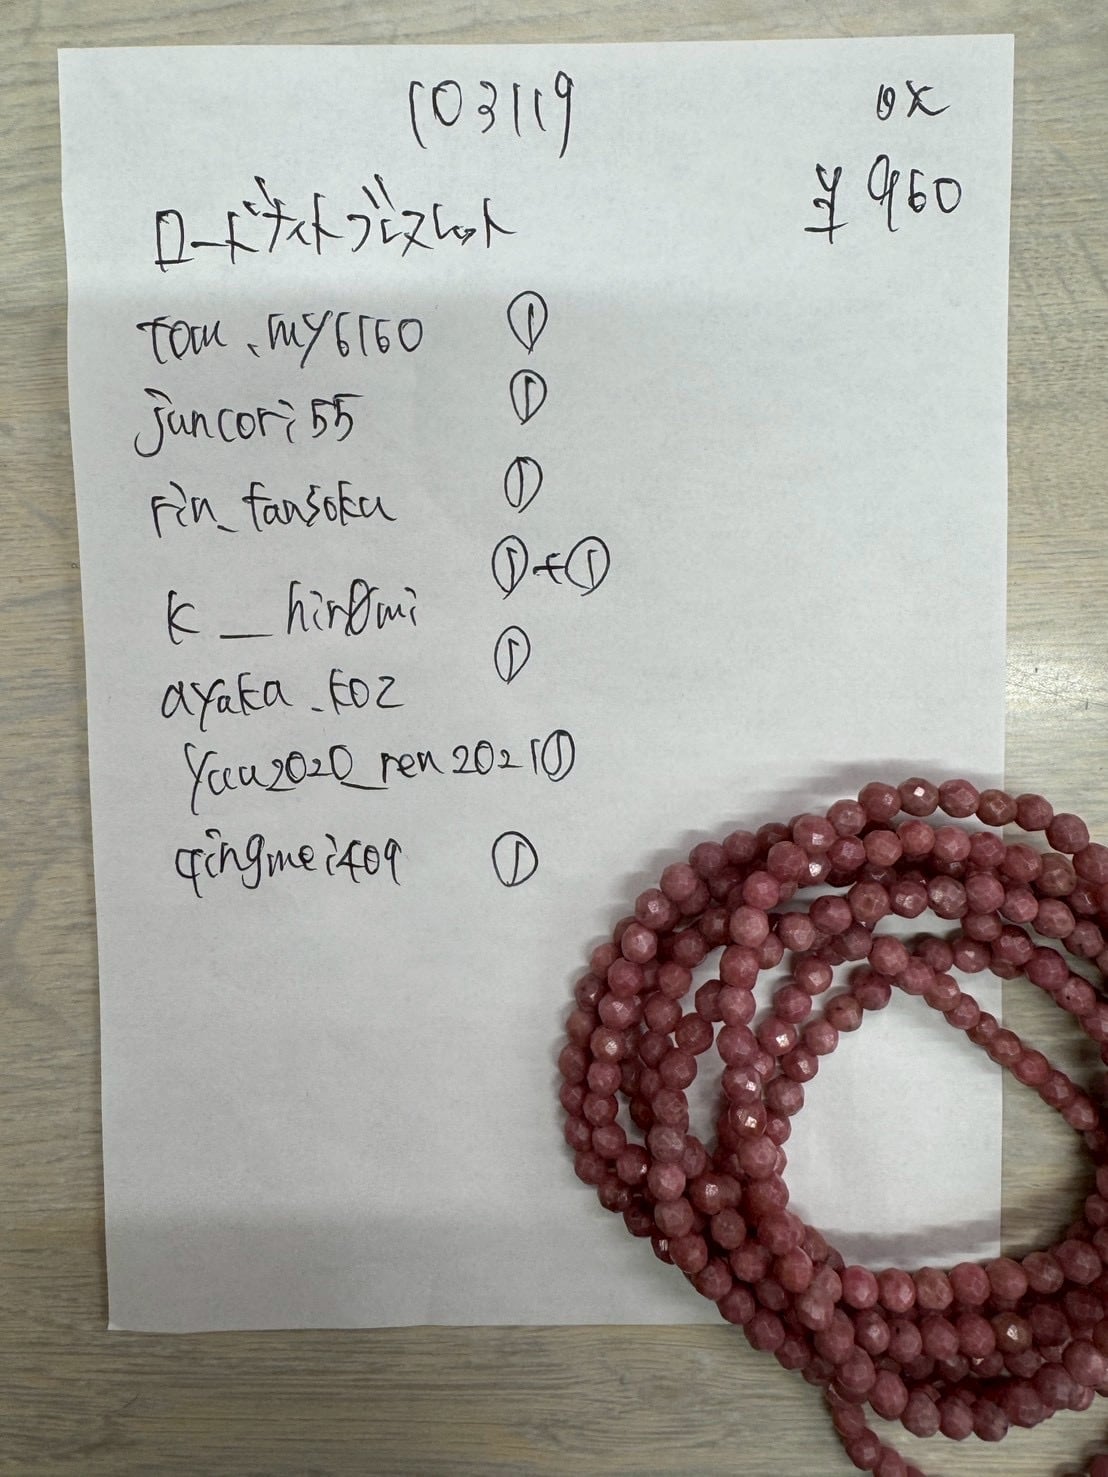 103119
ox
¥960
ロードナイトブレスレット
tom.my6160 ①
juncori55 ①
rin_tansoku ①
k__hir0mi ①+①
ayaka.koz ①
yuu2020_ren2021①
qingmei409 ①